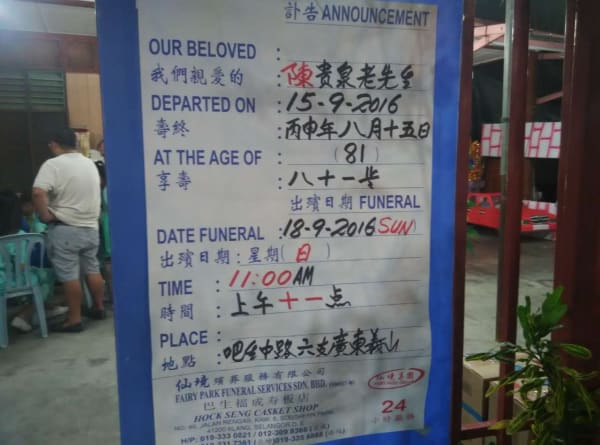 訃告 ANNOUNCEMENT
OUR BELOVED :
我們親愛的 : 陳贵泉老先生
DEPARTED ON : 15-9-2016
壽終 : 丙申年八月十五日
AT THE AGE OF : (81)
享壽 : 八十一岁
出殯日期 FUNERAL
DATE FUNERAL : 18-9-2016 SUN
出殯日期 : 星期(日)
TIME : 11:00AM
時間 : 上午十一点
PLACE :
地點 : 吧生中路六支廣東義山
仙境殯葬服務有限公司
FAIRY PARK FUNERAL SERVICES SDN. BHD.
巴生福成壽板店
HOCK SENG CASKET SHOP
41200 KLANG, SELANGOR D. E.
H/P: 019-333 0821 / 012-309 8368
24
小時服務